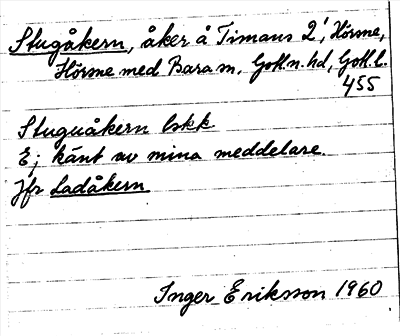 Stugåkern, åker å Timans 2¹, Hörsne,
Hörsne med Bara sn, Gotl.n.hd, Gotl.l.
455
Stuguåkern bskk
Ej känt av mina meddelare.
Jfr Ladåkern
Inger Eriksson 1960